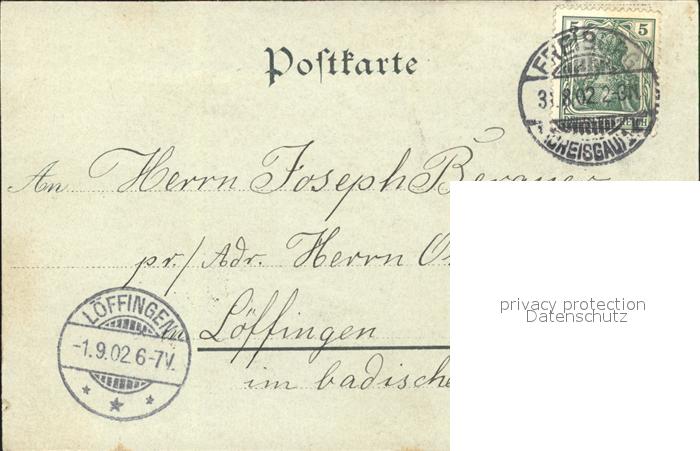 Postkarte
5 5
FREIBURG
31.8.02 2-3N
(BREISGAU)
An Herrn Joseph
pr./Adr. Herrn
LÖFFINGEN
Löffingen
-1.9.02 6-7V.
im badische
privacy protection
Datenschutz